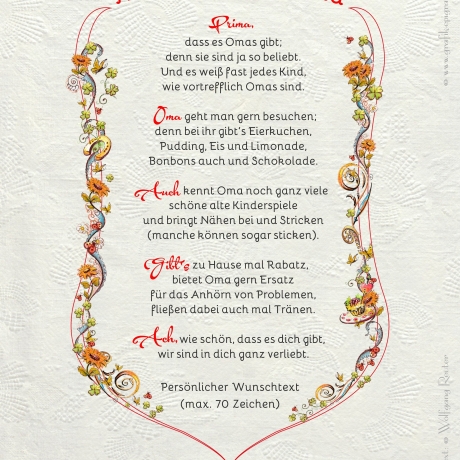 Prima,
dass es Omas gibt;
denn sie sind ja so beliebt.
Und es weiß fast jedes Kind,
wie vortrefflich Omas sind.
Oma geht man gern besuchen;
denn bei ihr gibt's Eierkuchen,
Pudding, Eis und Limonade,
Bonbons auch und Schokolade.
Auch kennt Oma noch ganz viele
schöne alte Kinderspiele
und bringt Nähen bei und Stricken
(manche können sogar sticken).
Gibt's zu Hause mal Rabatz,
bietet Oma gern Ersatz
für das Anhörn von Problemen,
fließen dabei auch mal Tränen.
Ach, wie schön, dass es dich gibt,
wir sind in dich ganz verliebt.
Persönlicher Wunschtext
(max. 70 Zeichen)